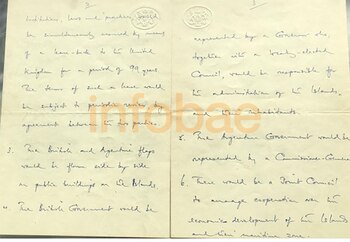 2.
institutions, laws and practices, would
be simultaneously assured by means
of a lease-back to the United
Kingdom for a period of 99 years.
The terms of such a lease would
be subject to periodic review by
agreement between the two parties.
3. The British and Argentine flags
would be flown side by side
on public buildings on the Islands.
4. The British Government would be
represented by a Governor who,
together with a locally-elected
Council, would be responsible for
the administration of the Islands
and their inhabitants.
5. The Argentine Government would be
represented by a Commissioner-General
6. There would be a Joint Council
to arrange cooperation over the
economic development of the Islands
and their maritime zone.
infobae